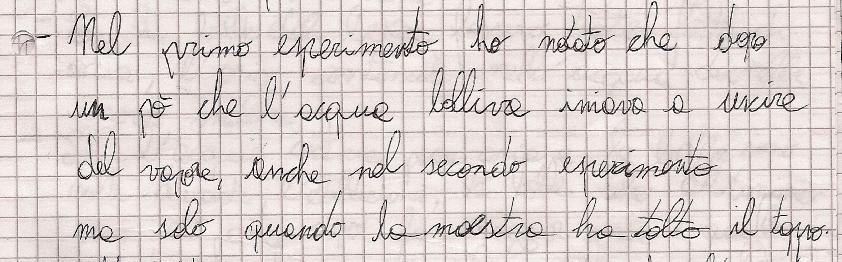 - Nel primo esperimento ho notato che dopo
un pò che l'acqua bolliva iniava a uscire
del vapore, anche nel secondo esperimento
ma solo quando la maestra ha tolto il tappo.